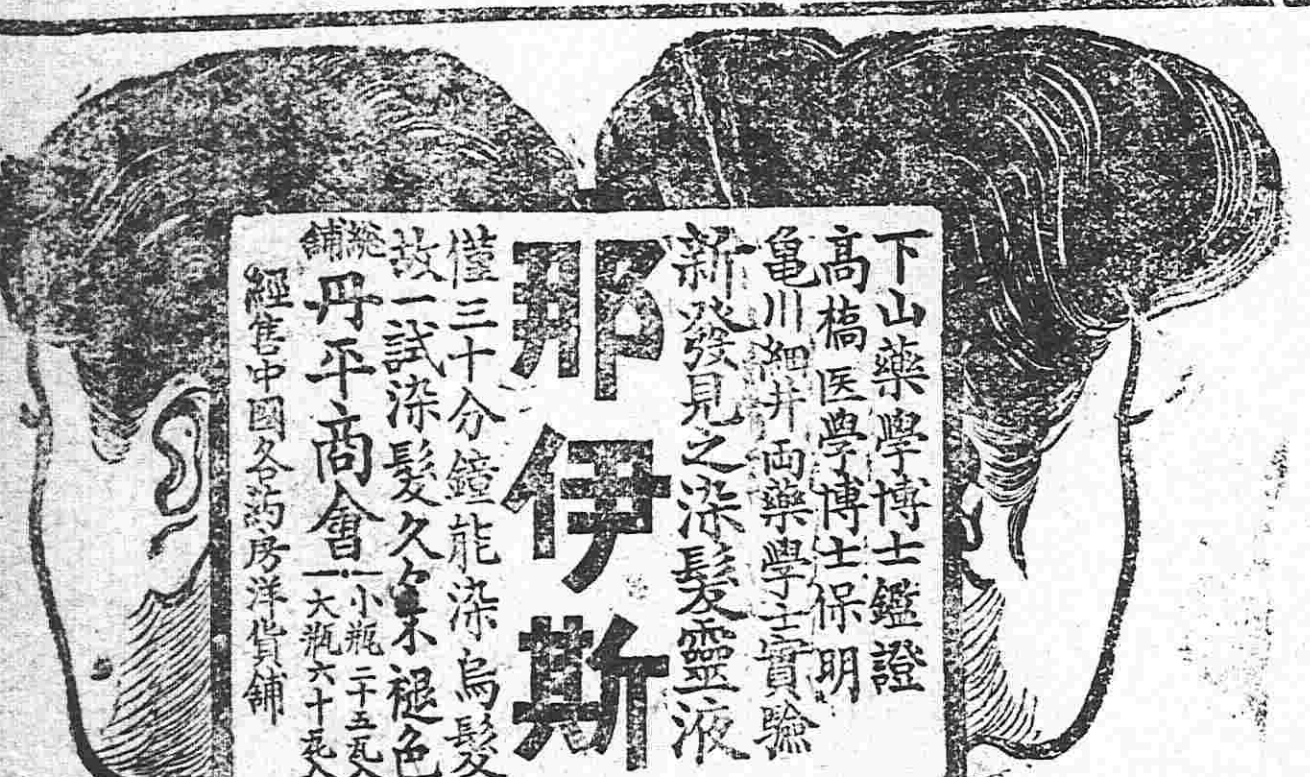 下山藥學博士鑑證
高橋医學博士保明
亀川細井両藥學士實驗
新發見之染髮靈液
那伊斯
僅三十分鐘能染烏髮
故一試染髮久 不褪色
總舖 丹平商會 一小瓶二十五瓦入
一大瓶六十瓦入
經售中國各葯房洋貨舖